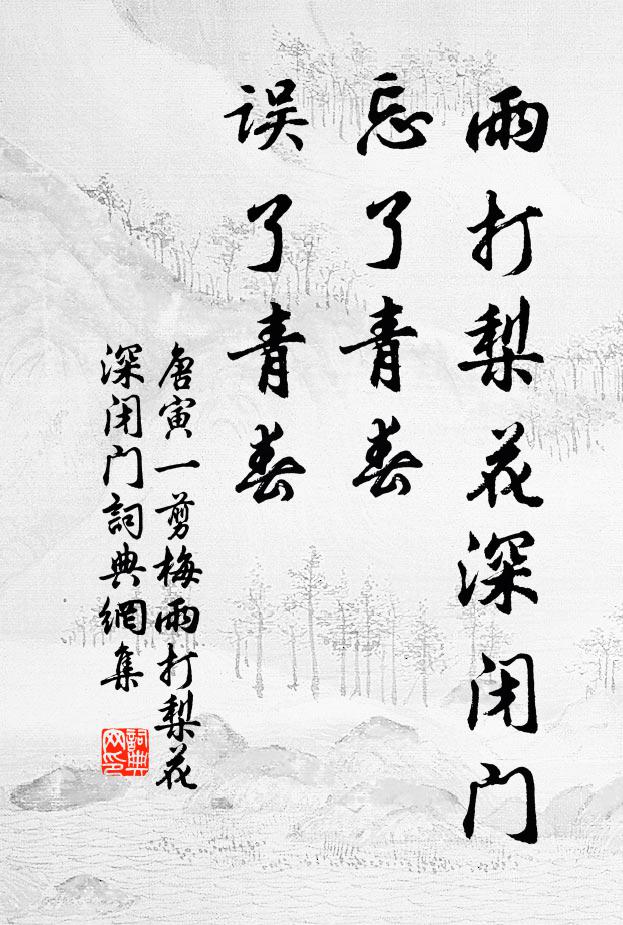 雨打梨花深闭门
忘了青春
误了青春
唐寅一剪梅雨打梨花
深闭门詞典網集
詞典
网印